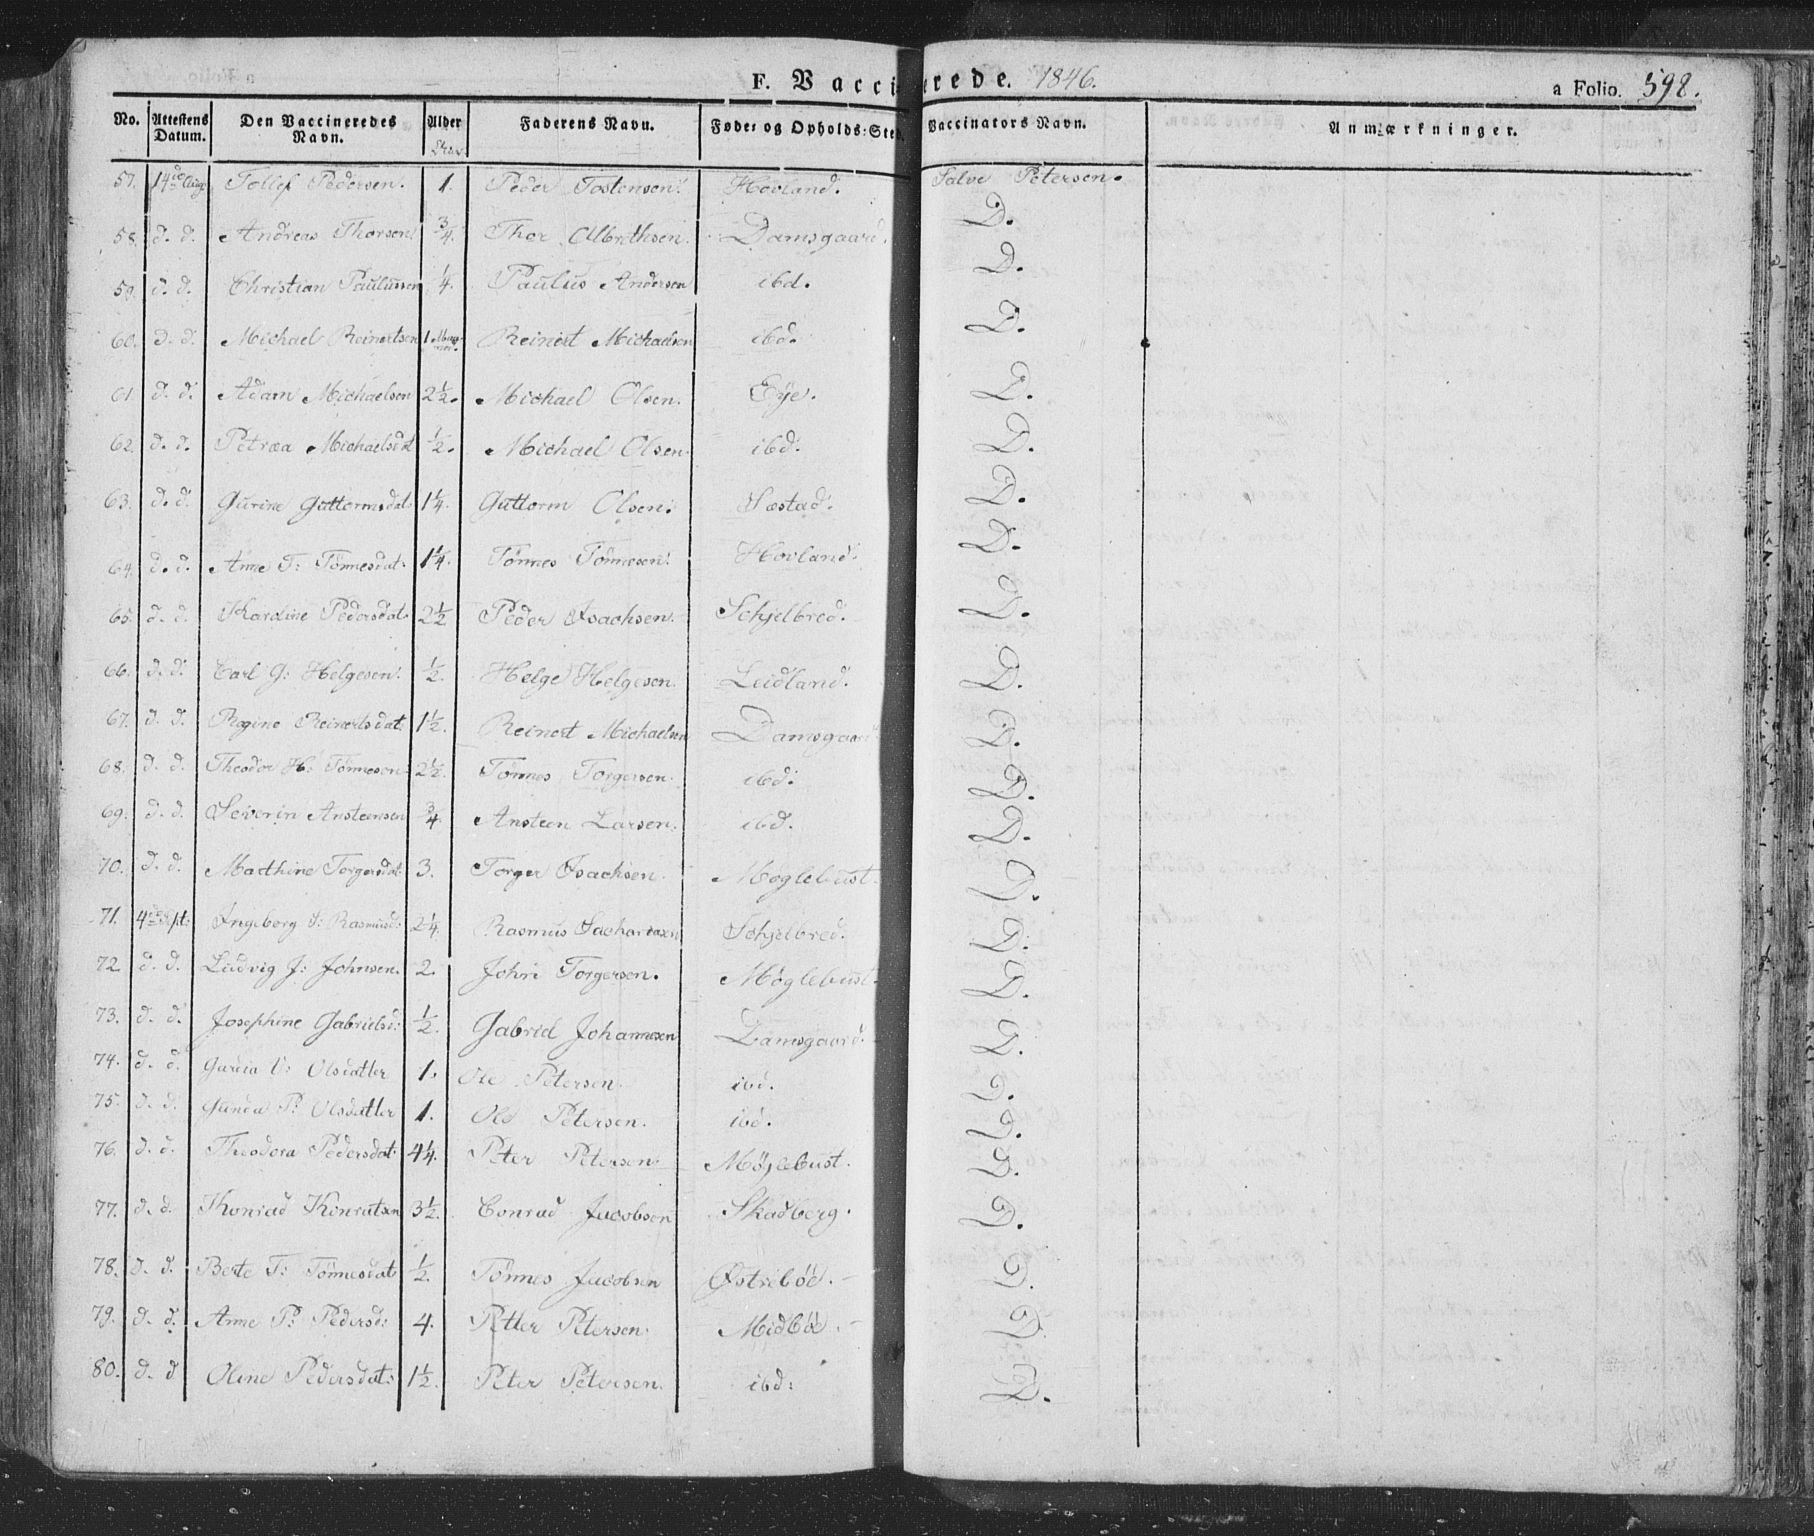 F. Vaccinerede. 1846. a Folio. 598.
No. Attestens Datum. Den Vaccineredes Navn. Alder Faderens Navn. Føde- og Opholds-Sted. Vaccinators Navn. Anmærkninger.
57. 14de Aug. Tollef Pedersen. 1. Peder Tostensen. Hovland. Salve Petersen.
58. d. d. Andreas Thorsen. 3/4. Thor Albrethsen. Damsgaard. D.
59. d. d. Christian Paulussen 1/4. Paulus Andersen ibd. D.
60. d. d. Michael Reinertsen 1 Reinert Michaelsen ibd. D.
61. d. d. Adam Michaelsen 2 1/2. Michael Olsen. Eye. D.
62. d. d. Petræa Michaelsdat 1/2. Michael Olsen. ibd. D.
63. d. d. Gurine Guttormsdat. 1 1/4. Guttorm Olsen. Sæstad. D.
64. d. d. Anne T: Tönnesdat: 1 1/4. Tönnes Tönnesen. Hovland. D.
65. d. d. Karoline Pedersdat. 2 1/2 Peder Isachsen. Schjelbred. D.
66. d. d. Carl G: Helgesen. 1/2. Helge Helgesen. Leidland. D.
67. d. d. Regine Reinertsdat. 1 1/2. Reinert Michaelsen Damsgaard D.
68. d. d. Theodor H: Tönnesen 2 1/2. Tönnes Torgersen. ibd. D.
69. d. d. Severin Ansteensen 3/4. Ansteen Larsen. ibd. D.
70. d. d. Mathine Torgersdat. 3. Torger Isachsen. Møglebust. D.
71. 4de Sept: Ingeborg S: Rasmusd: 2 1/4. Rasmus Sachariasen Schjelbred. D.
72. d. d. Ludvig J: Johnsen. 2. John Torgersen. Møglebust. D.
73. d. d. Josephine Gabrielsd: 1/2. Gabriel Johannesen Damsgaard. D.
74. d. d. Olsdatter 1. Ole Petersen. ibd. D.
75. d. d. Gunda P: Olsdatter 1. Ole Petersen. ibd. D.
76. d. d. Theodora Pedersdat. 4 1/4. Peter Petersen. Møglebust. D.
77. d. d. Konrad Konratsen 3 1/2. Conrad Jacobsen Skadberg. D.
78. d. d. Berte T: Tönnesdat 1/2. Tönnes Jacobsen Østreböe. D.
79. d. d. Anne P: Pedersd: 4. Petter Petersen. Midböe. D.
80. d. d Oline Pedersdat: 1 1/2. Peter Petersen. ibd: D.